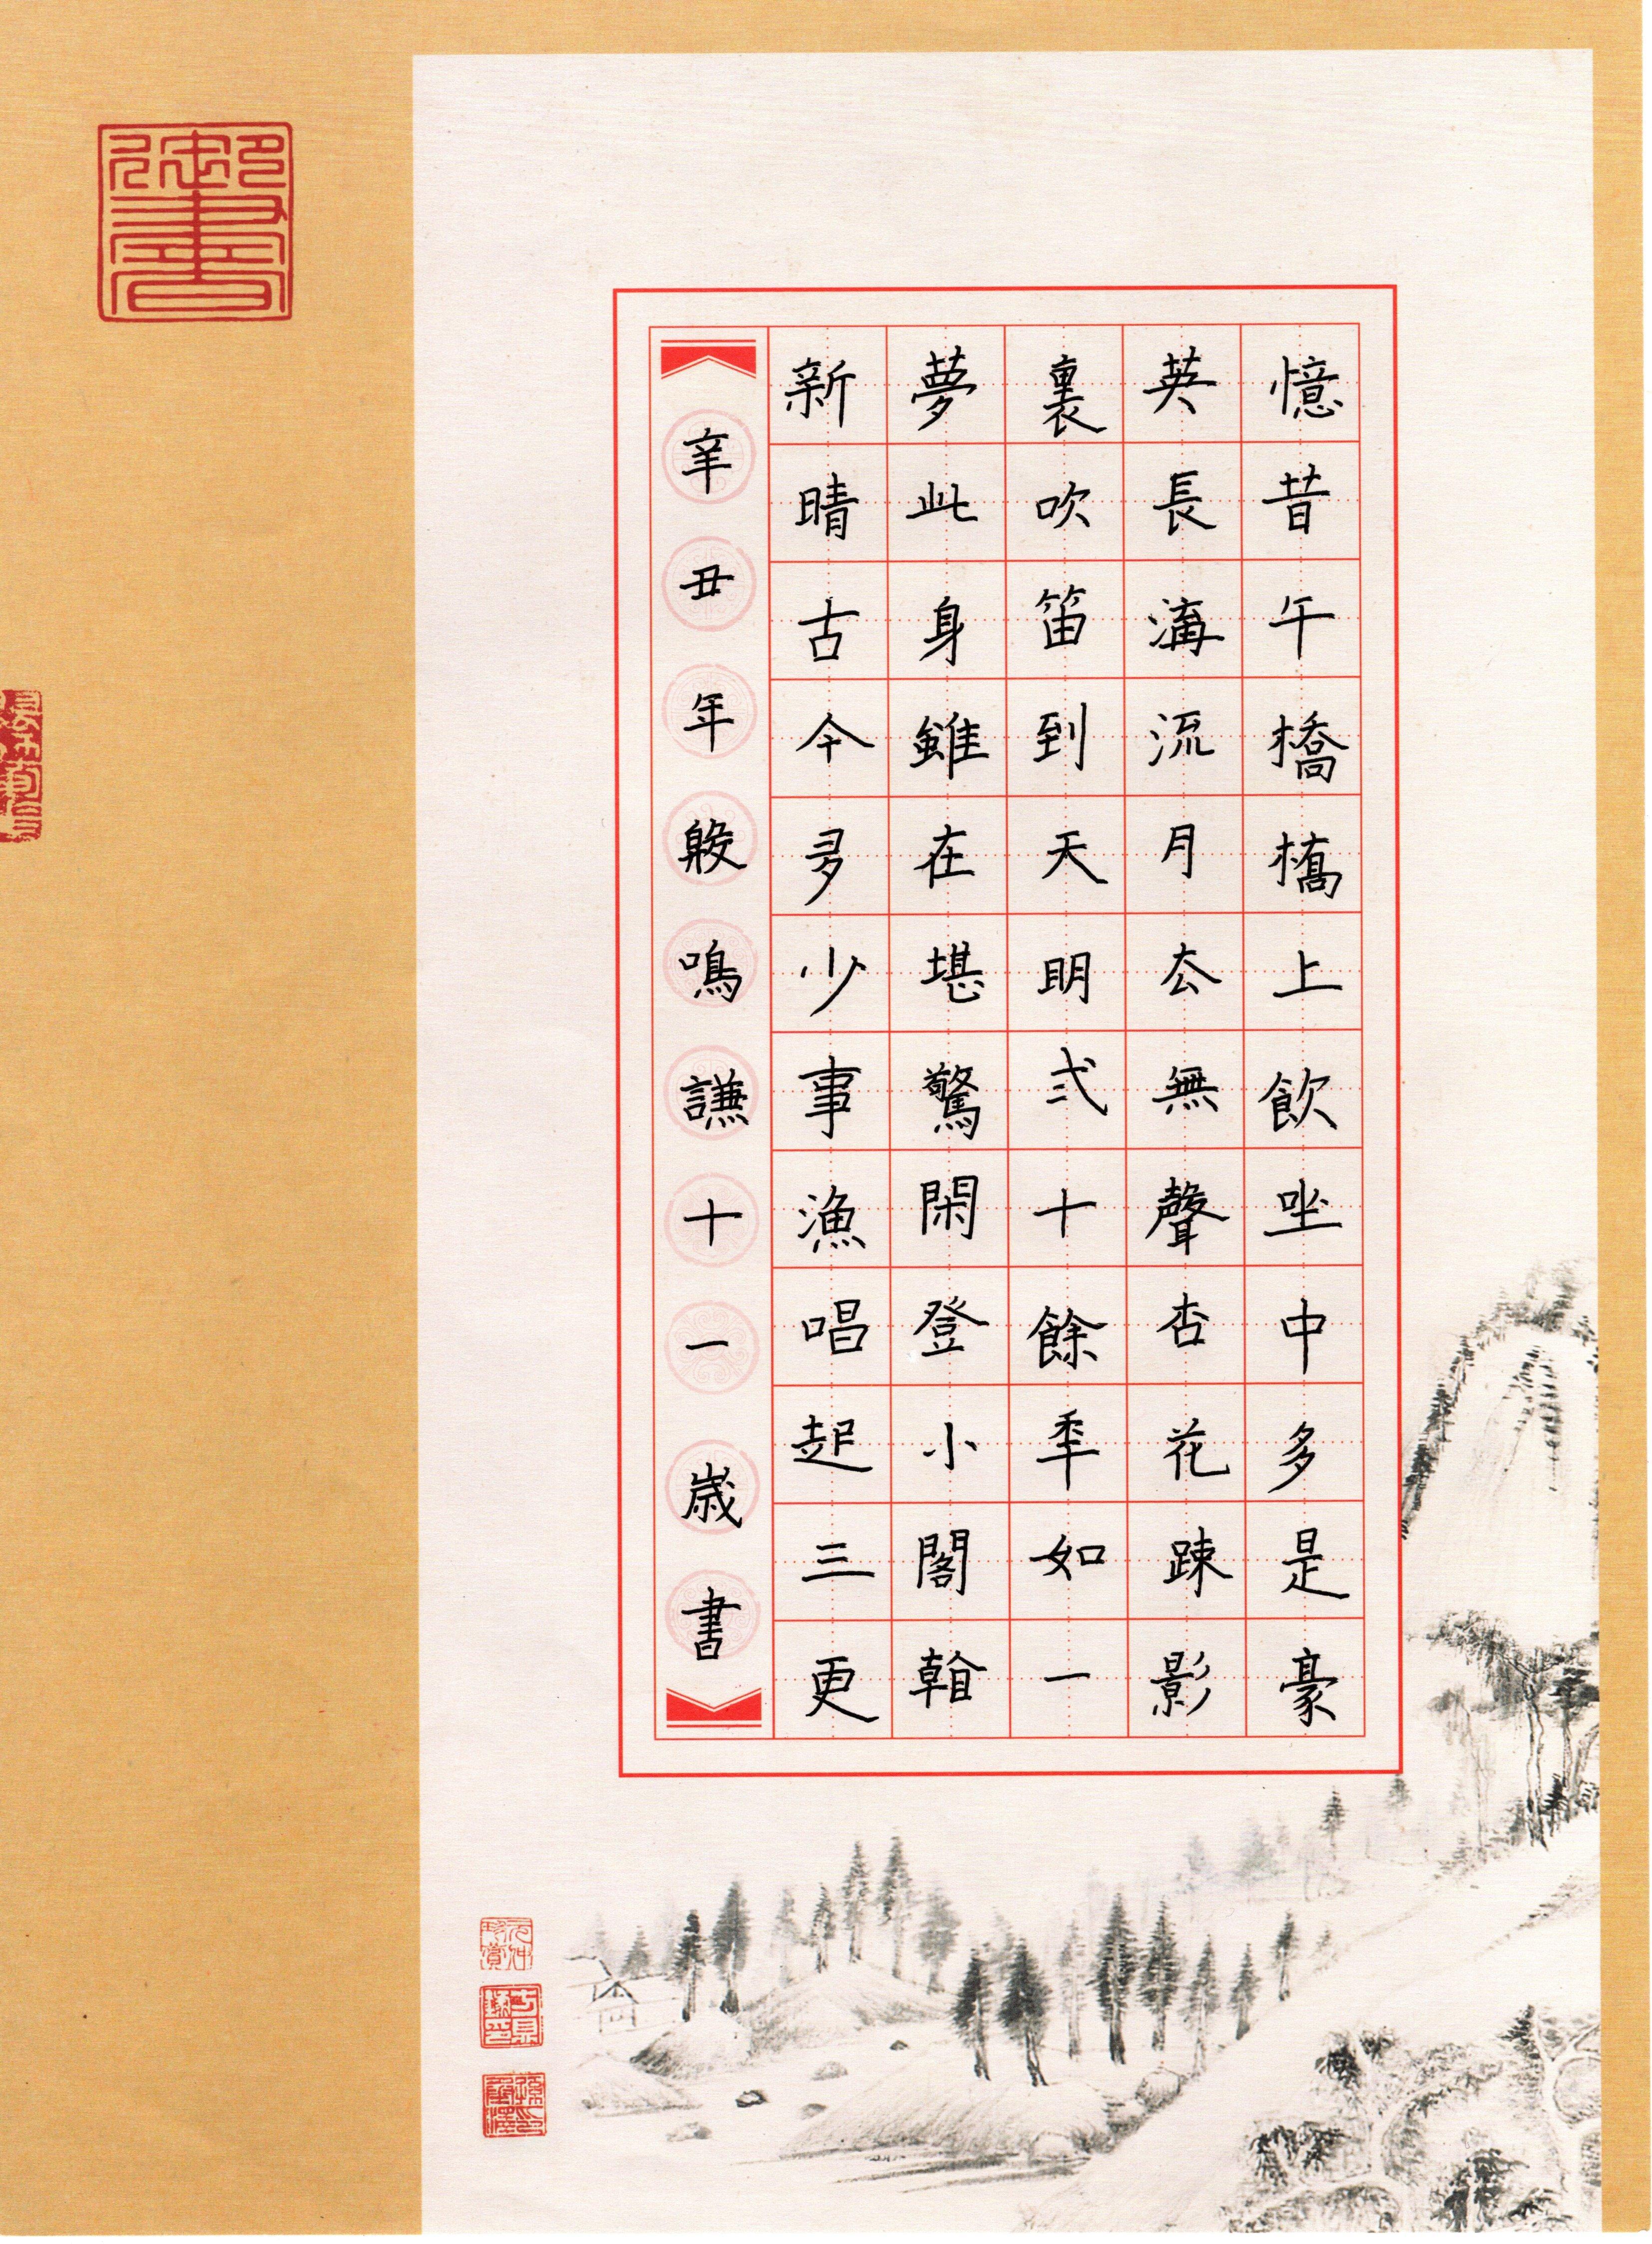 憶昔午橋橋上飲坐中多是豪
英長溝流月厺無聲杏花踈影
裏吹笛到天明弍十餘秊如一
夢此身雖在堪驚閑登小閣看
新晴古今多少事漁唱起三更
辛丑年殷鳴謙十一歲書
御書